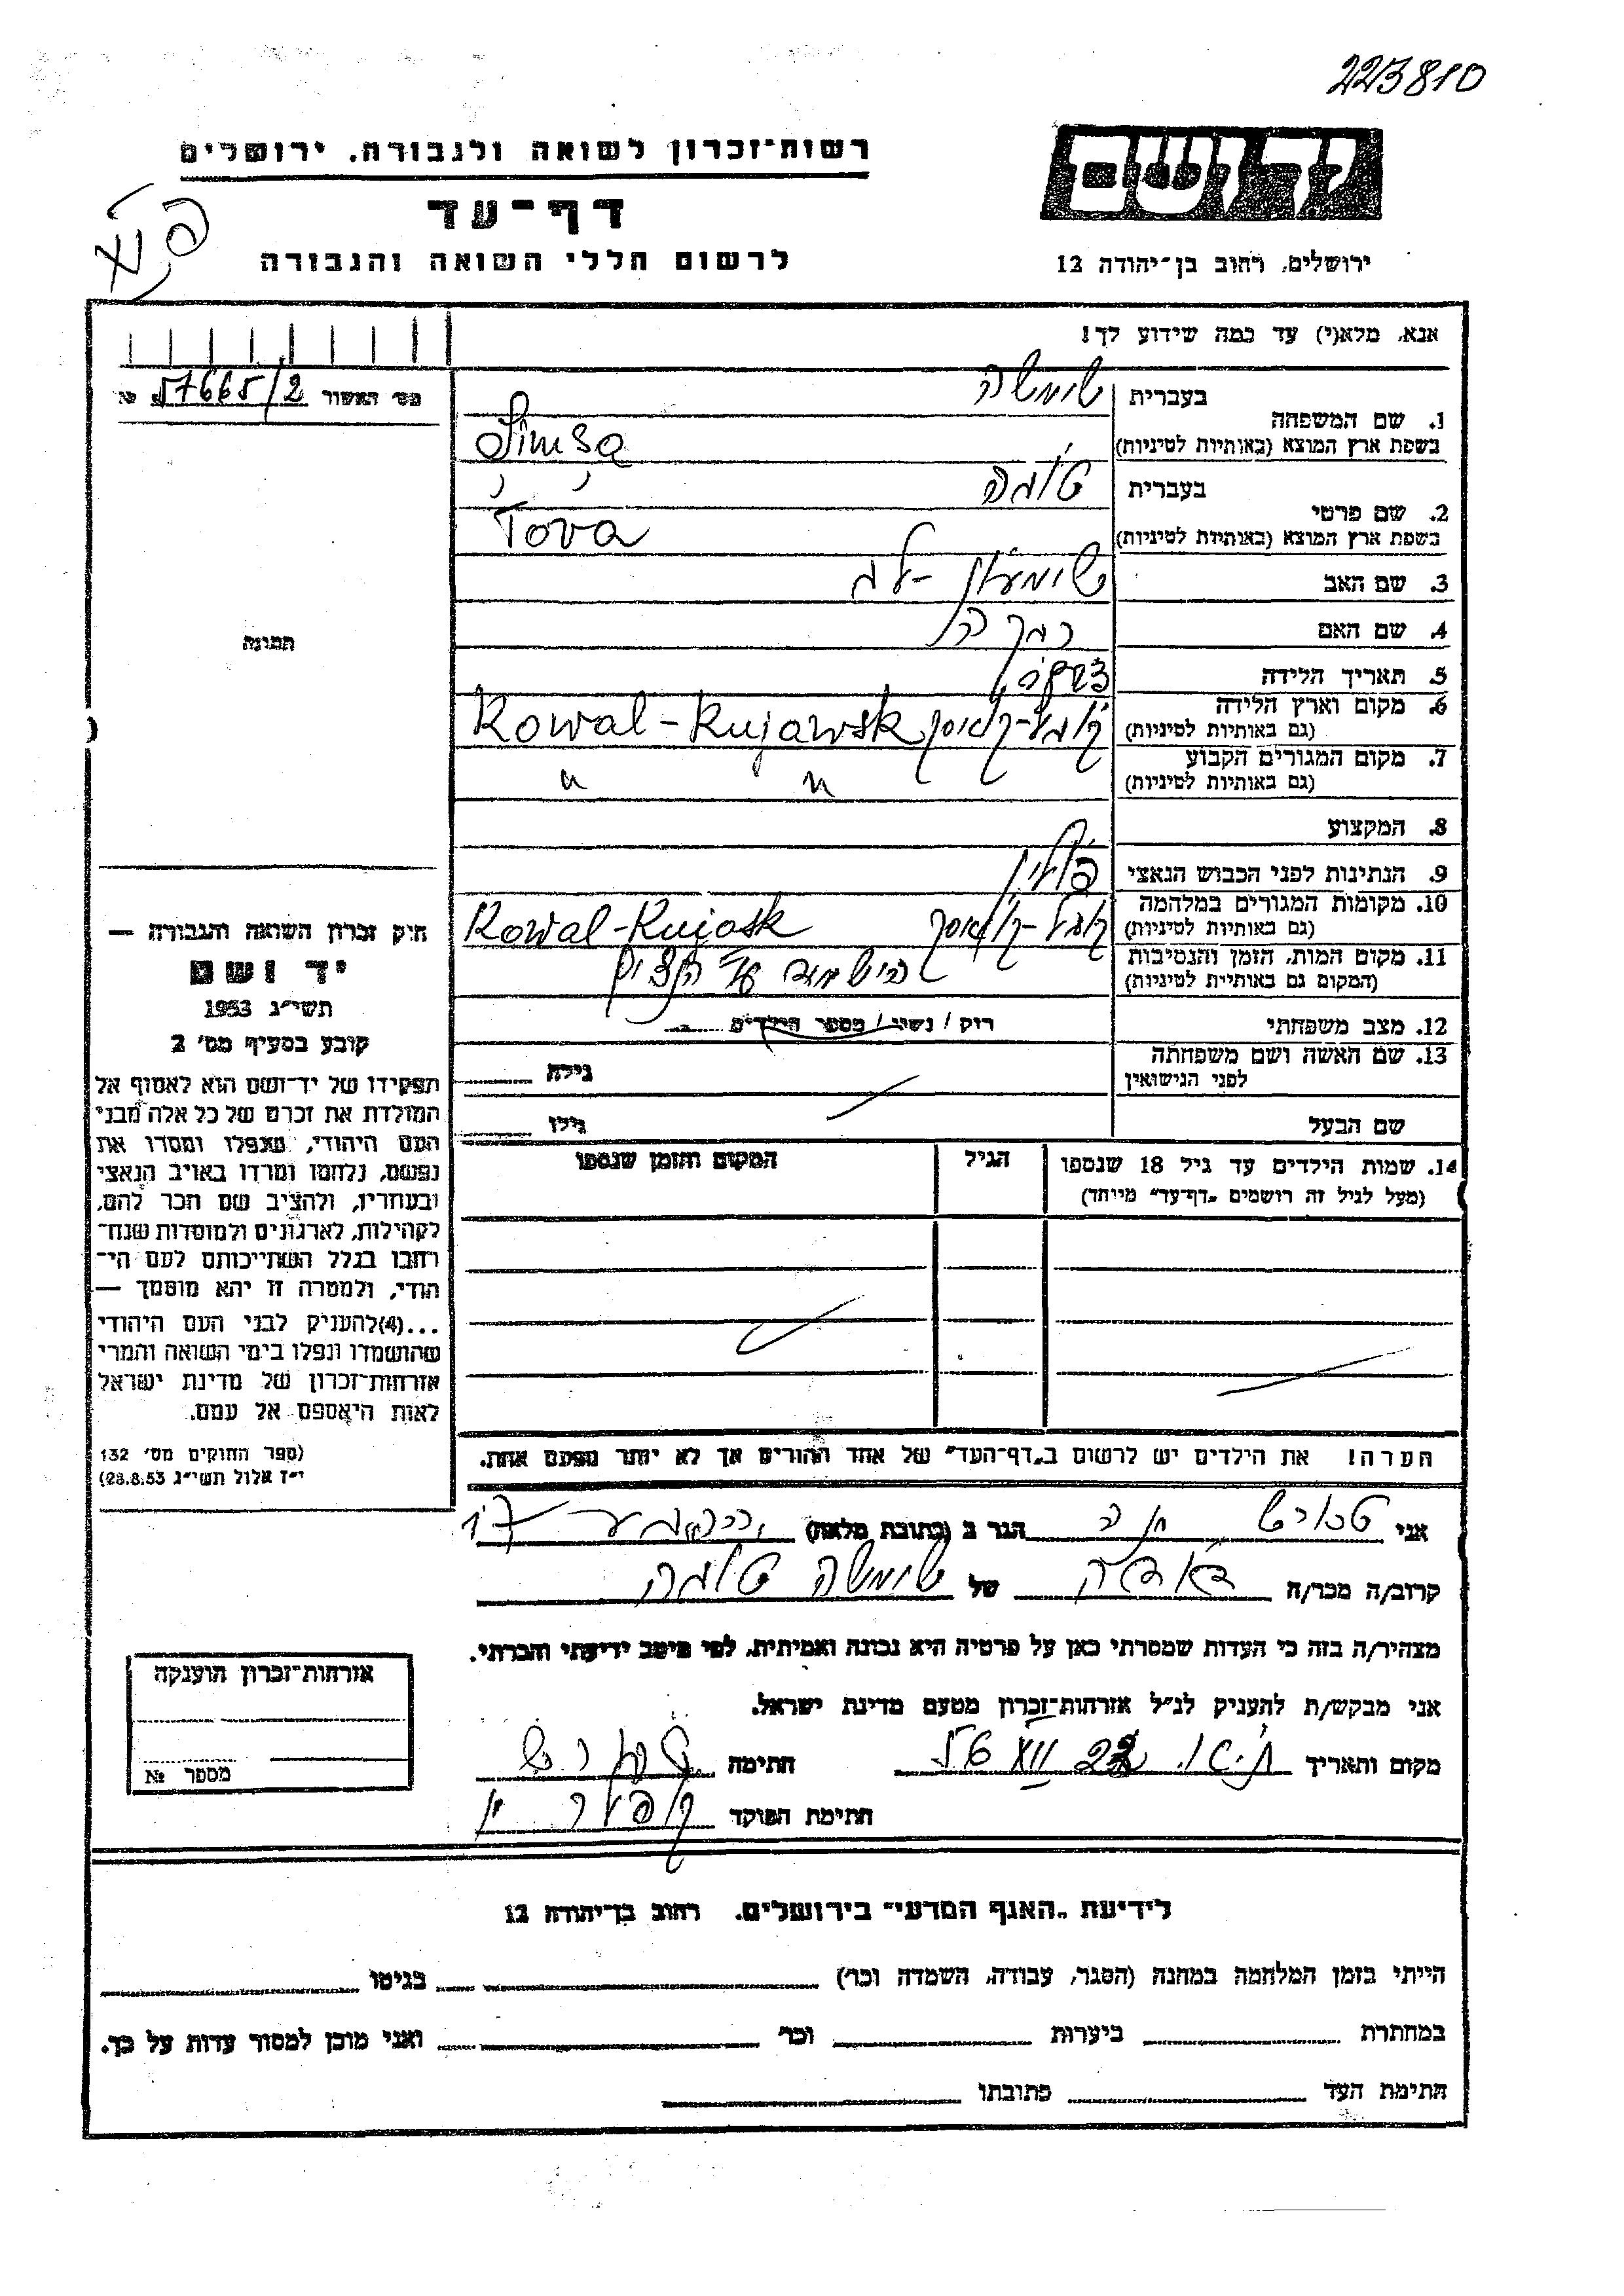 223810
רשות־זכרון לשואה ולגבורה. ירושלים
יד ושם
דף־עד
לרשום חללי השואה והגבורה
ירושלים, רחוב בן־יהודה 12
אנא, מלא(י) עד כמה שידוע לך!
מס׳ האשור № 57665/2
1. שם המשפחה
בעברית
שימשה
בשפת ארץ המוצא (באותיות לטיניות)
Simsa
2. שם פרטי
בעברית
טובה
בשפת ארץ המוצא (באותיות לטיניות)
Tova
3. שם האב
שימעון - לב
4. שם האם
5. תאריך הלידה
6. מקום וארץ הלידה
(גם באותיות לטיניות)
Kowal-Kujawsk
7. מקום המגורים הקבוע
(גם באותיות לטיניות)
״ ״
8. המקצוע
9. הנתינות לפני הכבוש הנאצי
פולין
10. מקומות המגורים במלחמה
(גם באותיות לטיניות)
Kowal-Kujask
11. מקום המות, הזמן והנסיבות
(המקום גם באותיית לטיניות)
12. מצב משפחתי
רוק / נשוי / מספר הילדים
13. שם האשה ושם משפחתה
לפני הנישואין
גילה
שם הבעל
גילו
14. שמות הילדים עד גיל 18 שנספו
(מעל לגיל זה רושמים „דף־עד״ מייחד)
הגיל
המקום והזמן שנספו
תמונה
חוק זכרון השואה והגבורה —
יד ושם
תשי״ג 1953
קובע בסעיף מס׳ 2
תפקידו של יד־ושם הוא לאסוף אל
המולדת את זכרם של כל אלה מבני
העם היהודי, שנפלו ומסרו את
נפשם, נלחמו ומרדו באויב הנאצי
ובעוזריו, ולהציב שם וזכר להם,
לקהילות, לארגונים ולמוסדות שנח־
רבו בגלל השתייכותם לעם הי־
הודי, ולמטרה זו יהא מוסמך —
...(4)להעניק לבני העם היהודי
שהושמדו ונפלו בימי השואה והמרי
אזרחות־זכרון של מדינת ישראל
לאות היאספם אל עמם.
(ספר החוקים מס׳ 132
י״ז אלול תשי״ג 28.8.53)
הערה! את הילדים יש לרשום ב„דף־העד״ של אחד ההורים אך לא יותר מפעם אחת.
אני
הגר ב (כתובת מלאה)
קרוב/ה מכר/ה דודה של שימשה טובה
מצהיר/ה בזה כי העדות שמסרתי כאן על פרטיה היא נכונה ואמיתית, לפי מיטב ידיעתי והכרתי.
אני מבקש/ת להעניק לנ״ל אזרחות־זכרון מטעם מדינת ישראל.
מקום ותאריך
חתימה
חתימת הפוקד
אזרחות־זכרון הוענקה
מספר №
לידיעת „האגף המדעי״ בירושלים. רחוב בן־יהודה 12
הייתי בזמן המלחמה במחנה (הסגר, עבודה, השמדה וכר׳) בגיטו
במחתרת ביערות וכר׳ ואני מוכן למסור עדות על כך.
חתימת העד כתובתו